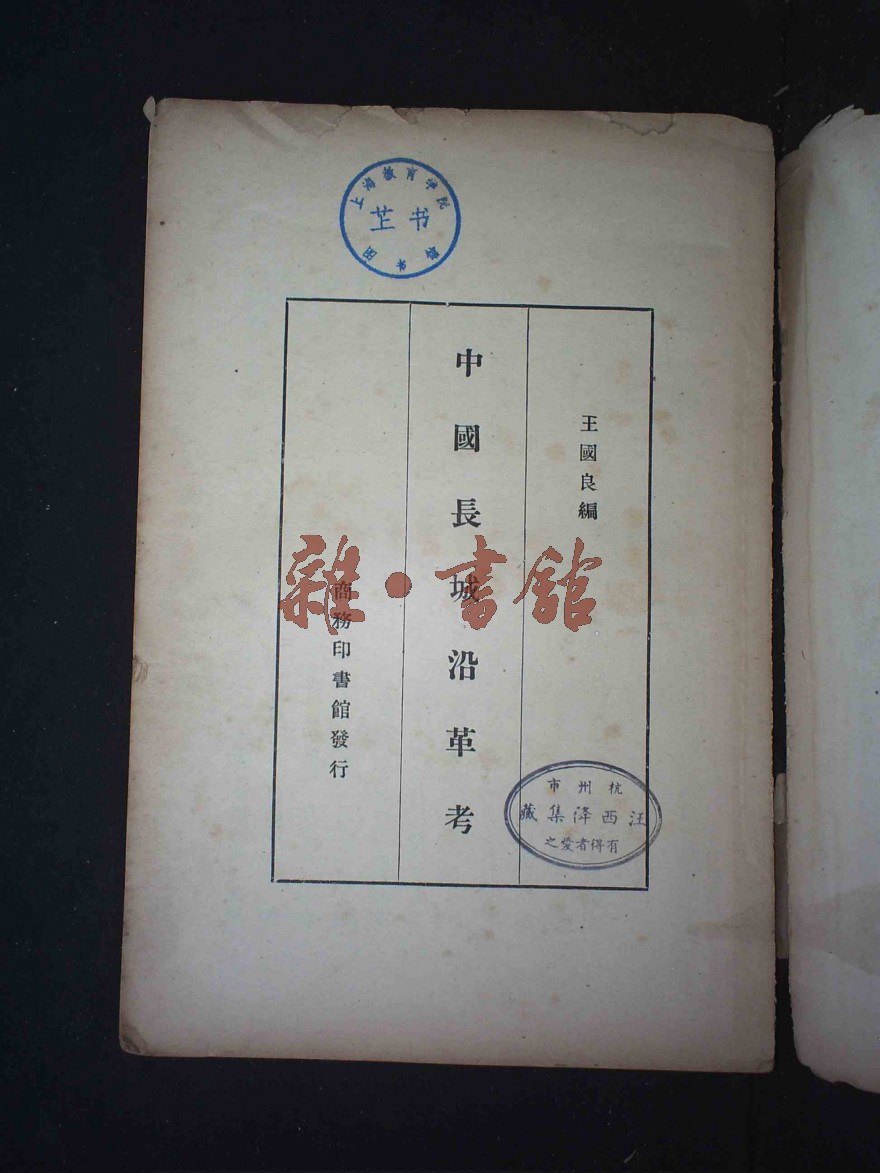 上海教育学院
书
图书館
王國良編
中國長城沿革考
商務印書館發行
雜·書館
杭州市
汪西泽集藏
有得者愛之